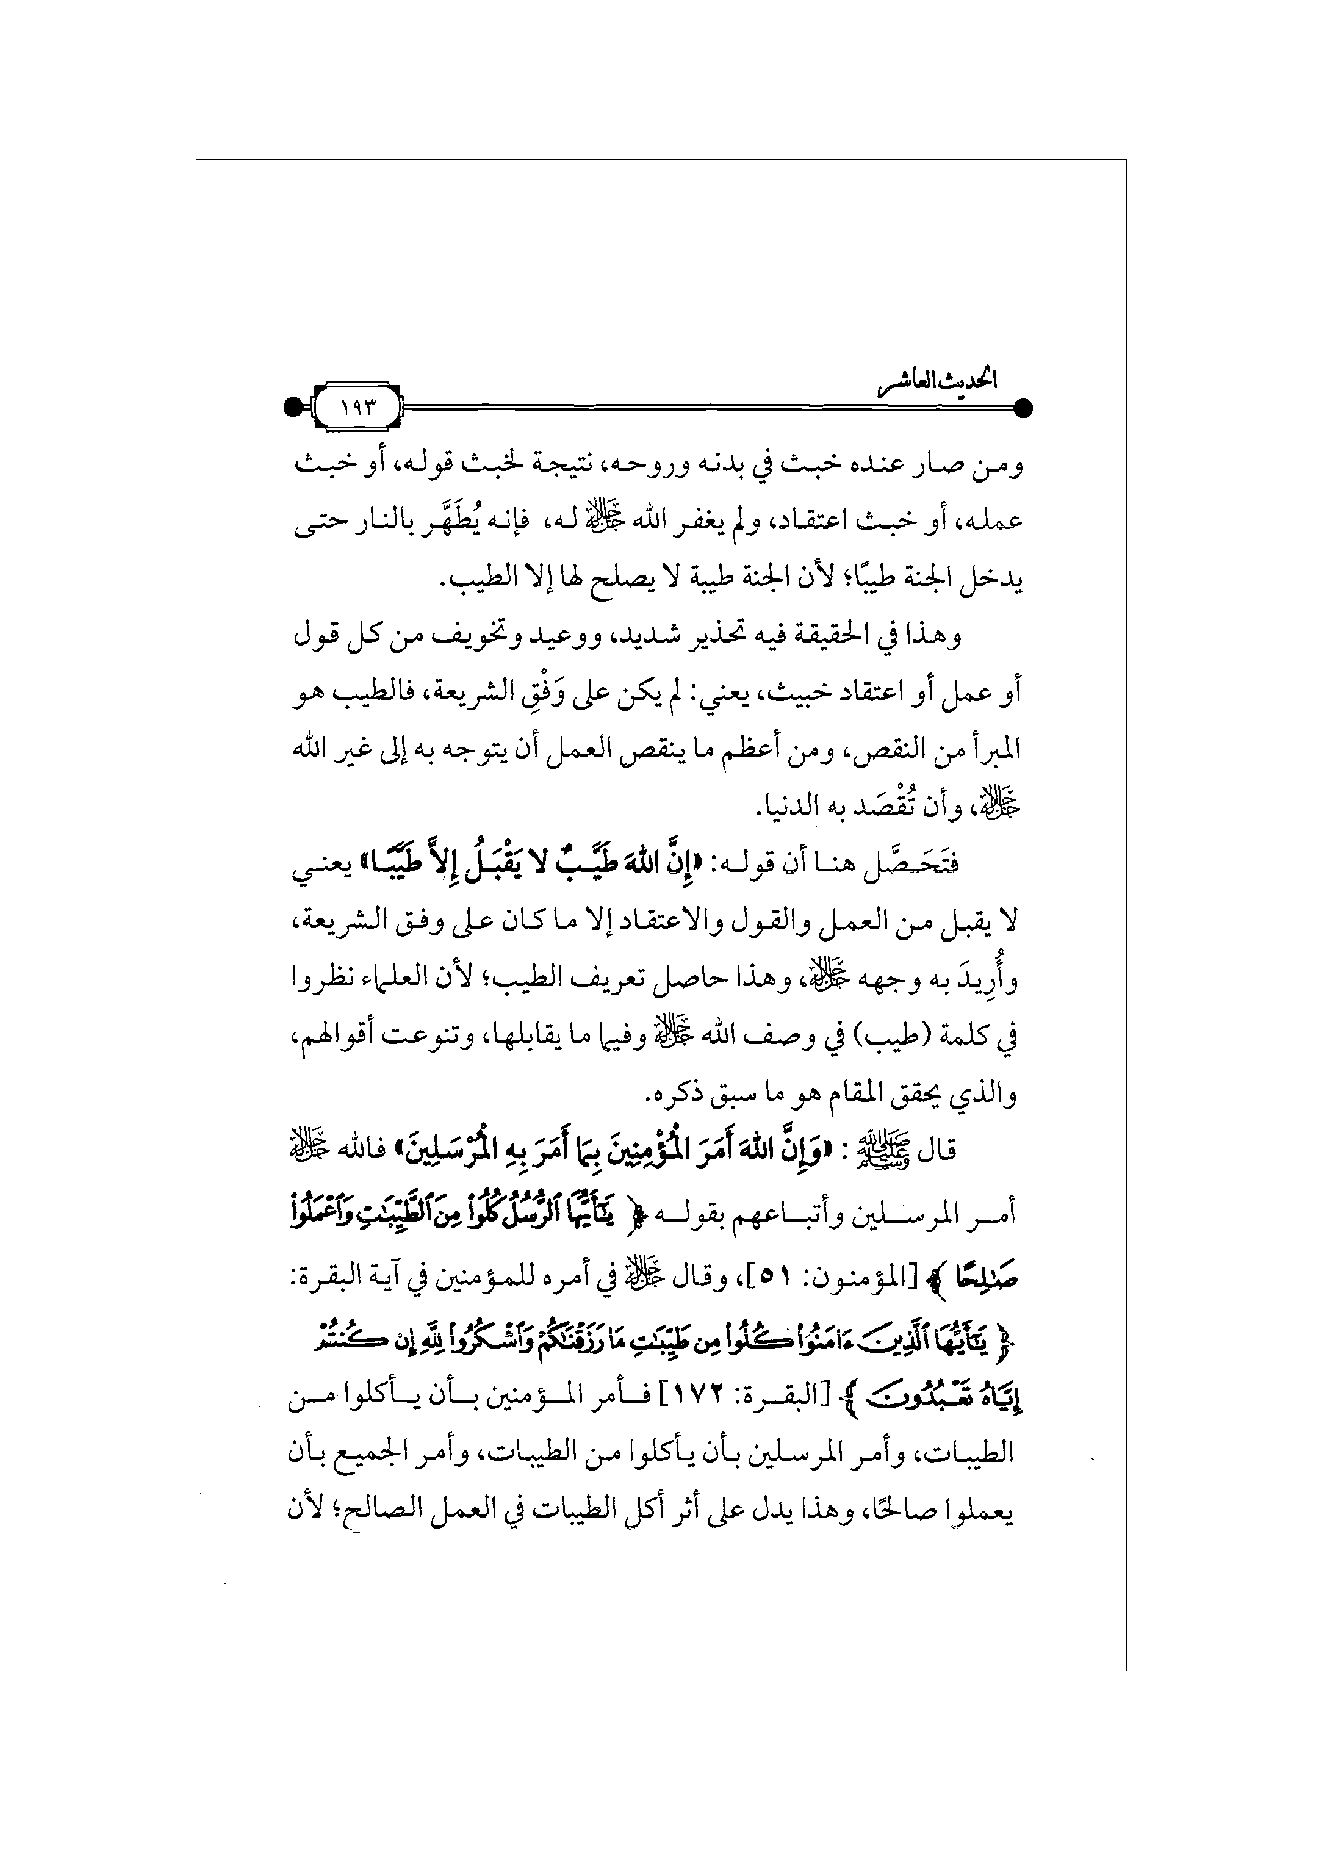 الحديث العاشر
١٩٣
ومن صار عنده خبث في بدنه وروحه، نتيجة لخبث قوله، أو خبث
عمله، أو خبث اعتقاد، ولم يغفر الله ﷻ له، فإنه يُطَهَّر بالنار حتى
يدخل الجنة طيبًا؛ لأن الجنة طيبة لا يصلح لها إلا الطيب.
وهذا في الحقيقة فيه تحذير شديد، ووعيد وتخويف من كل قول
أو عمل أو اعتقاد خبيث، يعني: لم يكن على وَفْقِ الشريعة، فالطيب هو
المبرأ من النقص، ومن أعظم ما ينقص العمل أن يتوجه به إلى غير الله
ﷻ، وأن تُقْصَد به الدنيا.
فتَحَصَّل هنا أن قوله: «إِنَّ اللهَ طَيِّبٌ لا يَقْبَلُ إِلاَّ طَيِّبًا» يعني
لا يقبل من العمل والقول والاعتقاد إلا ما كان على وفق الشريعة،
وأُرِيدَ به وجهه ﷻ، وهذا حاصل تعريف الطيب؛ لأن العلماء نظروا
في كلمة (طيب) في وصف الله ﷻ وفيما ما يقابلها، وتنوعت أقوالهم،
والذي يحقق المقام هو ما سبق ذكره.
قال ﷺ: «وَإِنَّ اللهَ أَمَرَ المُؤْمِنِينَ بِمَا أَمَرَ بِهِ المُرْسَلِينَ» فالله ﷻ
أمر المرسلين وأتباعهم بقوله ﴿ يَٰٓأَيُّهَا ٱلرُّسُلُ كُلُوا۟ مِنَ ٱلطَّيِّبَٰتِ وَٱعْمَلُوا۟
صَٰلِحًا ﴾ [المؤمنون: ٥١]، وقال ﷻ في أمره للمؤمنين في آية البقرة:
﴿ يَٰٓأَيُّهَا ٱلَّذِينَ ءَامَنُوا۟ كُلُوا۟ مِن طَيِّبَٰتِ مَا رَزَقْنَٰكُمْ وَٱشْكُرُوا۟ لِلَّهِ إِن كُنتُمْ
إِيَّاهُ تَعْبُدُونَ ﴾ [البقرة: ١٧٢] فأمر المؤمنين بأن يأكلوا من
الطيبات، وأمر المرسلين بأن يأكلوا من الطيبات، وأمر الجميع بأن
يعملوا صالحًا، وهذا يدل على أثر أكل الطيبات في العمل الصالح؛ لأن